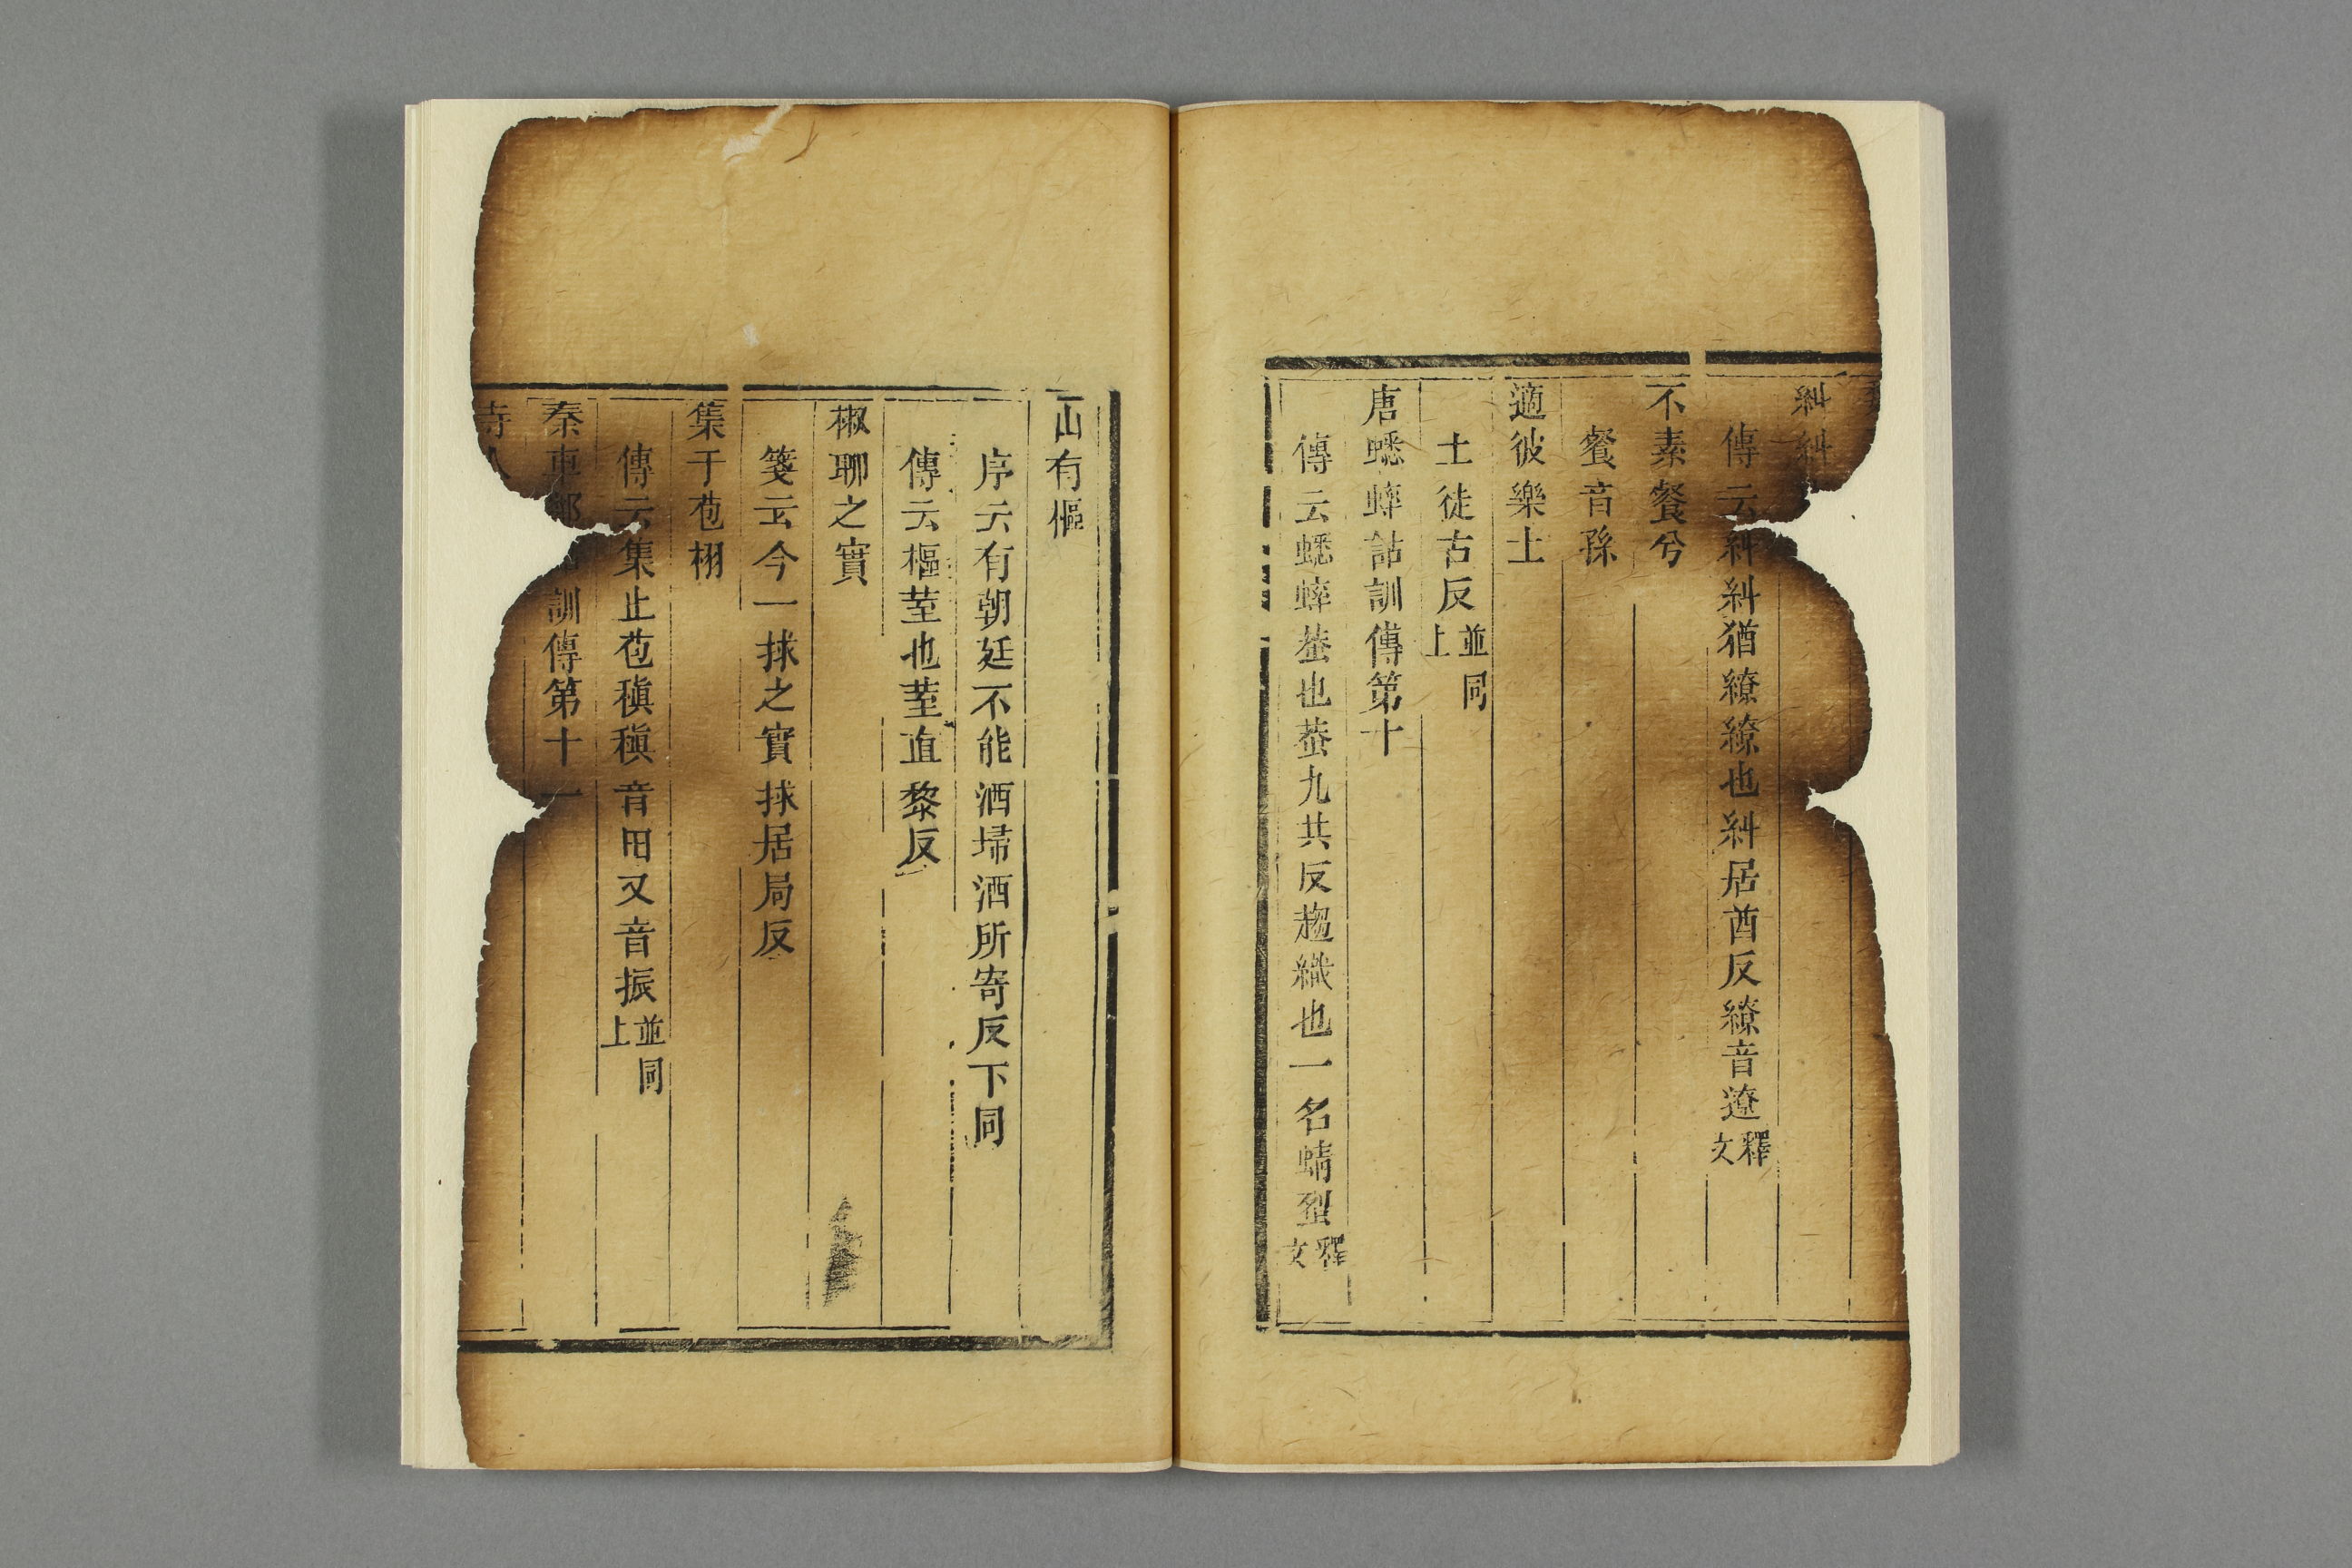 糾糾
傳云糾糾猶繚繚也糾居酋反繚音遼釋文
不素餐兮
餐音孫
適彼樂土
土徒古反並同上
唐蟋蟀詁訓傳第十
傳云蟋蟀蛬也蛬九共反趨織也一名蜻𧊿釋文
山有樞
序云有朝廷不能洒埽洒所寄反下同
傳云樞荎也荎直黎反
椒聊之實
箋云今一捄之實捄居局反
集于苞栩
傳云集止苞稹稹音田又音振並同上
秦車鄰訓傳第十一
寺人